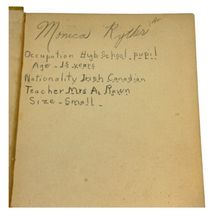 Monica Ryder
Occupation High School pupil
Age - 15 years
Nationality Irish Canadian
Teacher Mrs A. Brown
Size - Small -